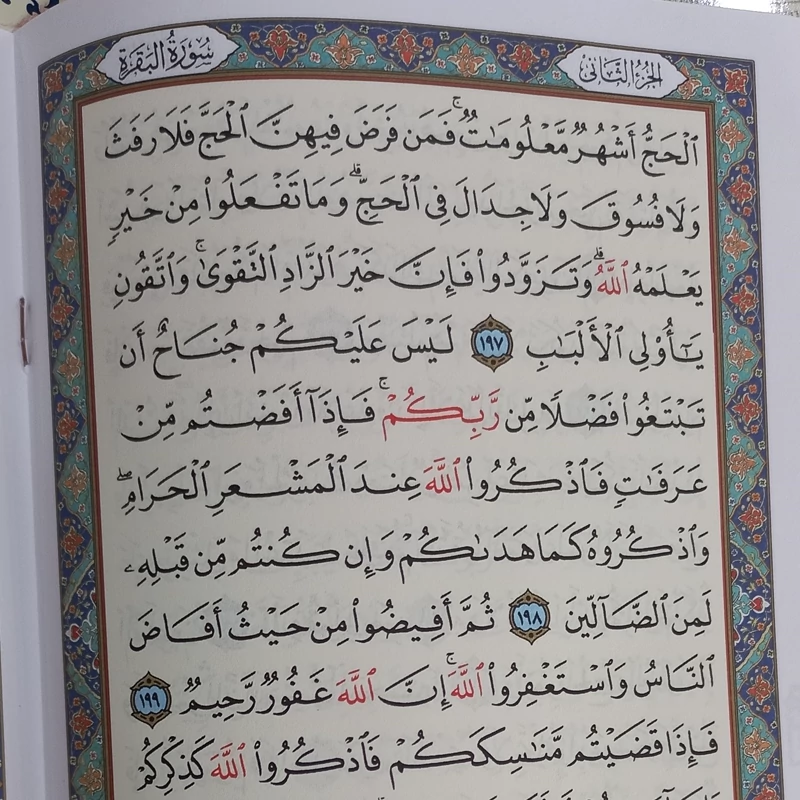 سُورَةُ البَقَرَةِ
الجُزءُ الثَّانِي
ٱلْحَجُّ أَشْهُرٌ مَّعْلُومَٰتٌ ۚ فَمَن فَرَضَ فِيهِنَّ ٱلْحَجَّ فَلَا رَفَثَ
وَلَا فُسُوقَ وَلَا جِدَالَ فِى ٱلْحَجِّ ۗ وَمَا تَفْعَلُوا۟ مِنْ خَيْرٍ
يَعْلَمْهُ ٱللَّهُ ۗ وَتَزَوَّدُوا۟ فَإِنَّ خَيْرَ ٱلزَّادِ ٱلتَّقْوَىٰ ۚ وَٱتَّقُونِ
يَٰٓأُو۟لِى ٱلْأَلْبَٰبِ ١٩٧ لَيْسَ عَلَيْكُمْ جُنَاحٌ أَن
تَبْتَغُوا۟ فَضْلًا مِّن رَّبِّكُمْ ۚ فَإِذَآ أَفَضْتُم مِّنْ
عَرَفَٰتٍ فَٱذْكُرُوا۟ ٱللَّهَ عِندَ ٱلْمَشْعَرِ ٱلْحَرَامِ ۖ
وَٱذْكُرُوهُ كَمَا هَدَىٰكُمْ وَإِن كُنتُم مِّن قَبْلِهِۦ
لَمِنَ ٱلضَّآلِّينَ ١٩٨ ثُمَّ أَفِيضُوا۟ مِنْ حَيْثُ أَفَاضَ
ٱلنَّاسُ وَٱسْتَغْفِرُوا۟ ٱللَّهَ ۚ إِنَّ ٱللَّهَ غَفُورٌ رَّحِيمٌ ١٩٩
فَإِذَا قَضَيْتُم مَّنَٰسِكَكُمْ فَٱذْكُرُوا۟ ٱللَّهَ كَذِكْرِكُمْ